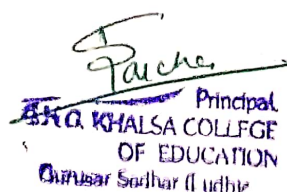 Principal
KHALSA COLLEGE
OF EDUCATION
Gurusar Sadhar (Ludh